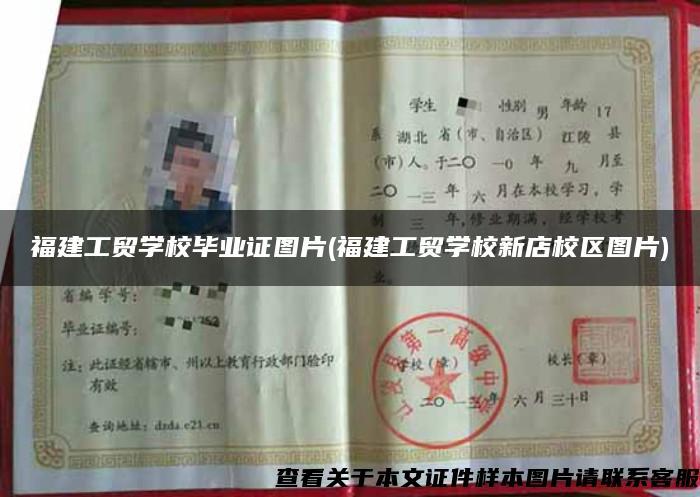 学生 性别 男 年龄 17
系 湖北 省(市、自治区) 江陵 县
(市)人。于二〇一0年九月至
二〇一三年六月在本校学习，学
制三年,修业期满，经学校考
福建工贸学校毕业证图片(福建工贸学校新店校区图片)
业。
省编学号：
毕业证编号：
注：此证经省辖市、州以上教育行政部门验印
有效
查询地址：dzda.e21.cn
江陵县第一高级中学
学校(章) 校长(章)
二〇一三年六月三十日
查看关于本文证件样本图片请联系客服